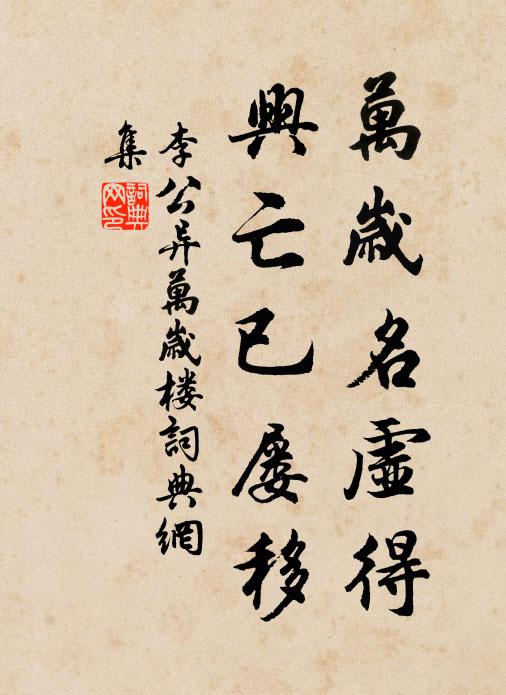 萬歲名虛得
興亡已屢移
李公异萬歲楼詞典網
集
詞典網印